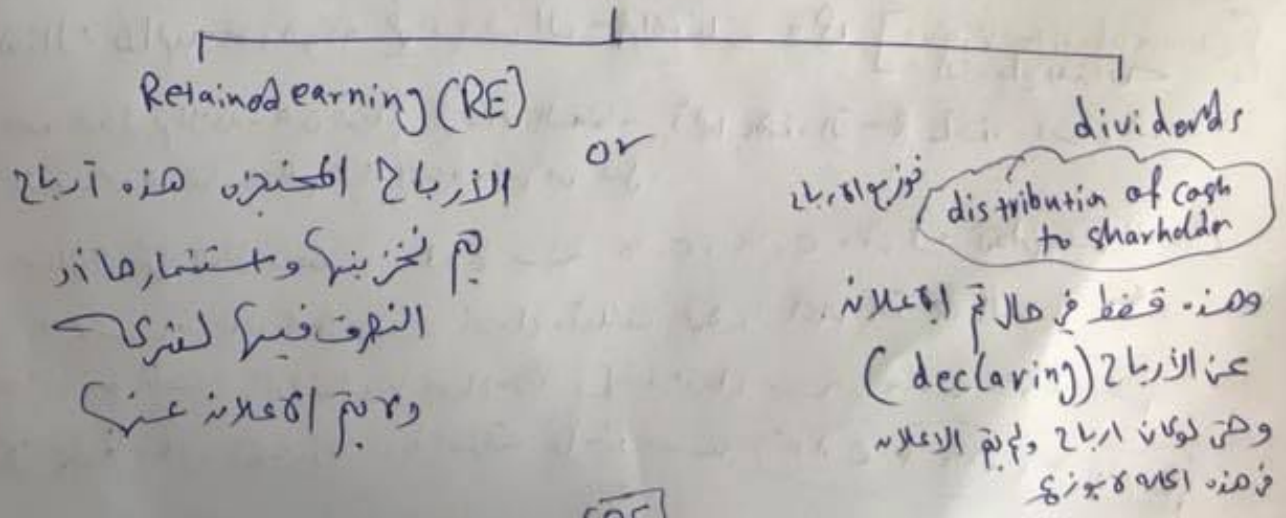 Retained earning (RE)
الأرباح المحتجزه هذه آرباح
يتم تخزينها واستثمارها أو
التصرف فيها
ولا يتم الاعلان عنها
or
dividends
توزيع الارباح
distribution of cash
to sharholder
وهذه فقط في حال تم الإعلان
عن الأرباح (declaring)
وحتى لو كان ارباح ولم يتم الاعلان
في هذه الحاله لا يوزع